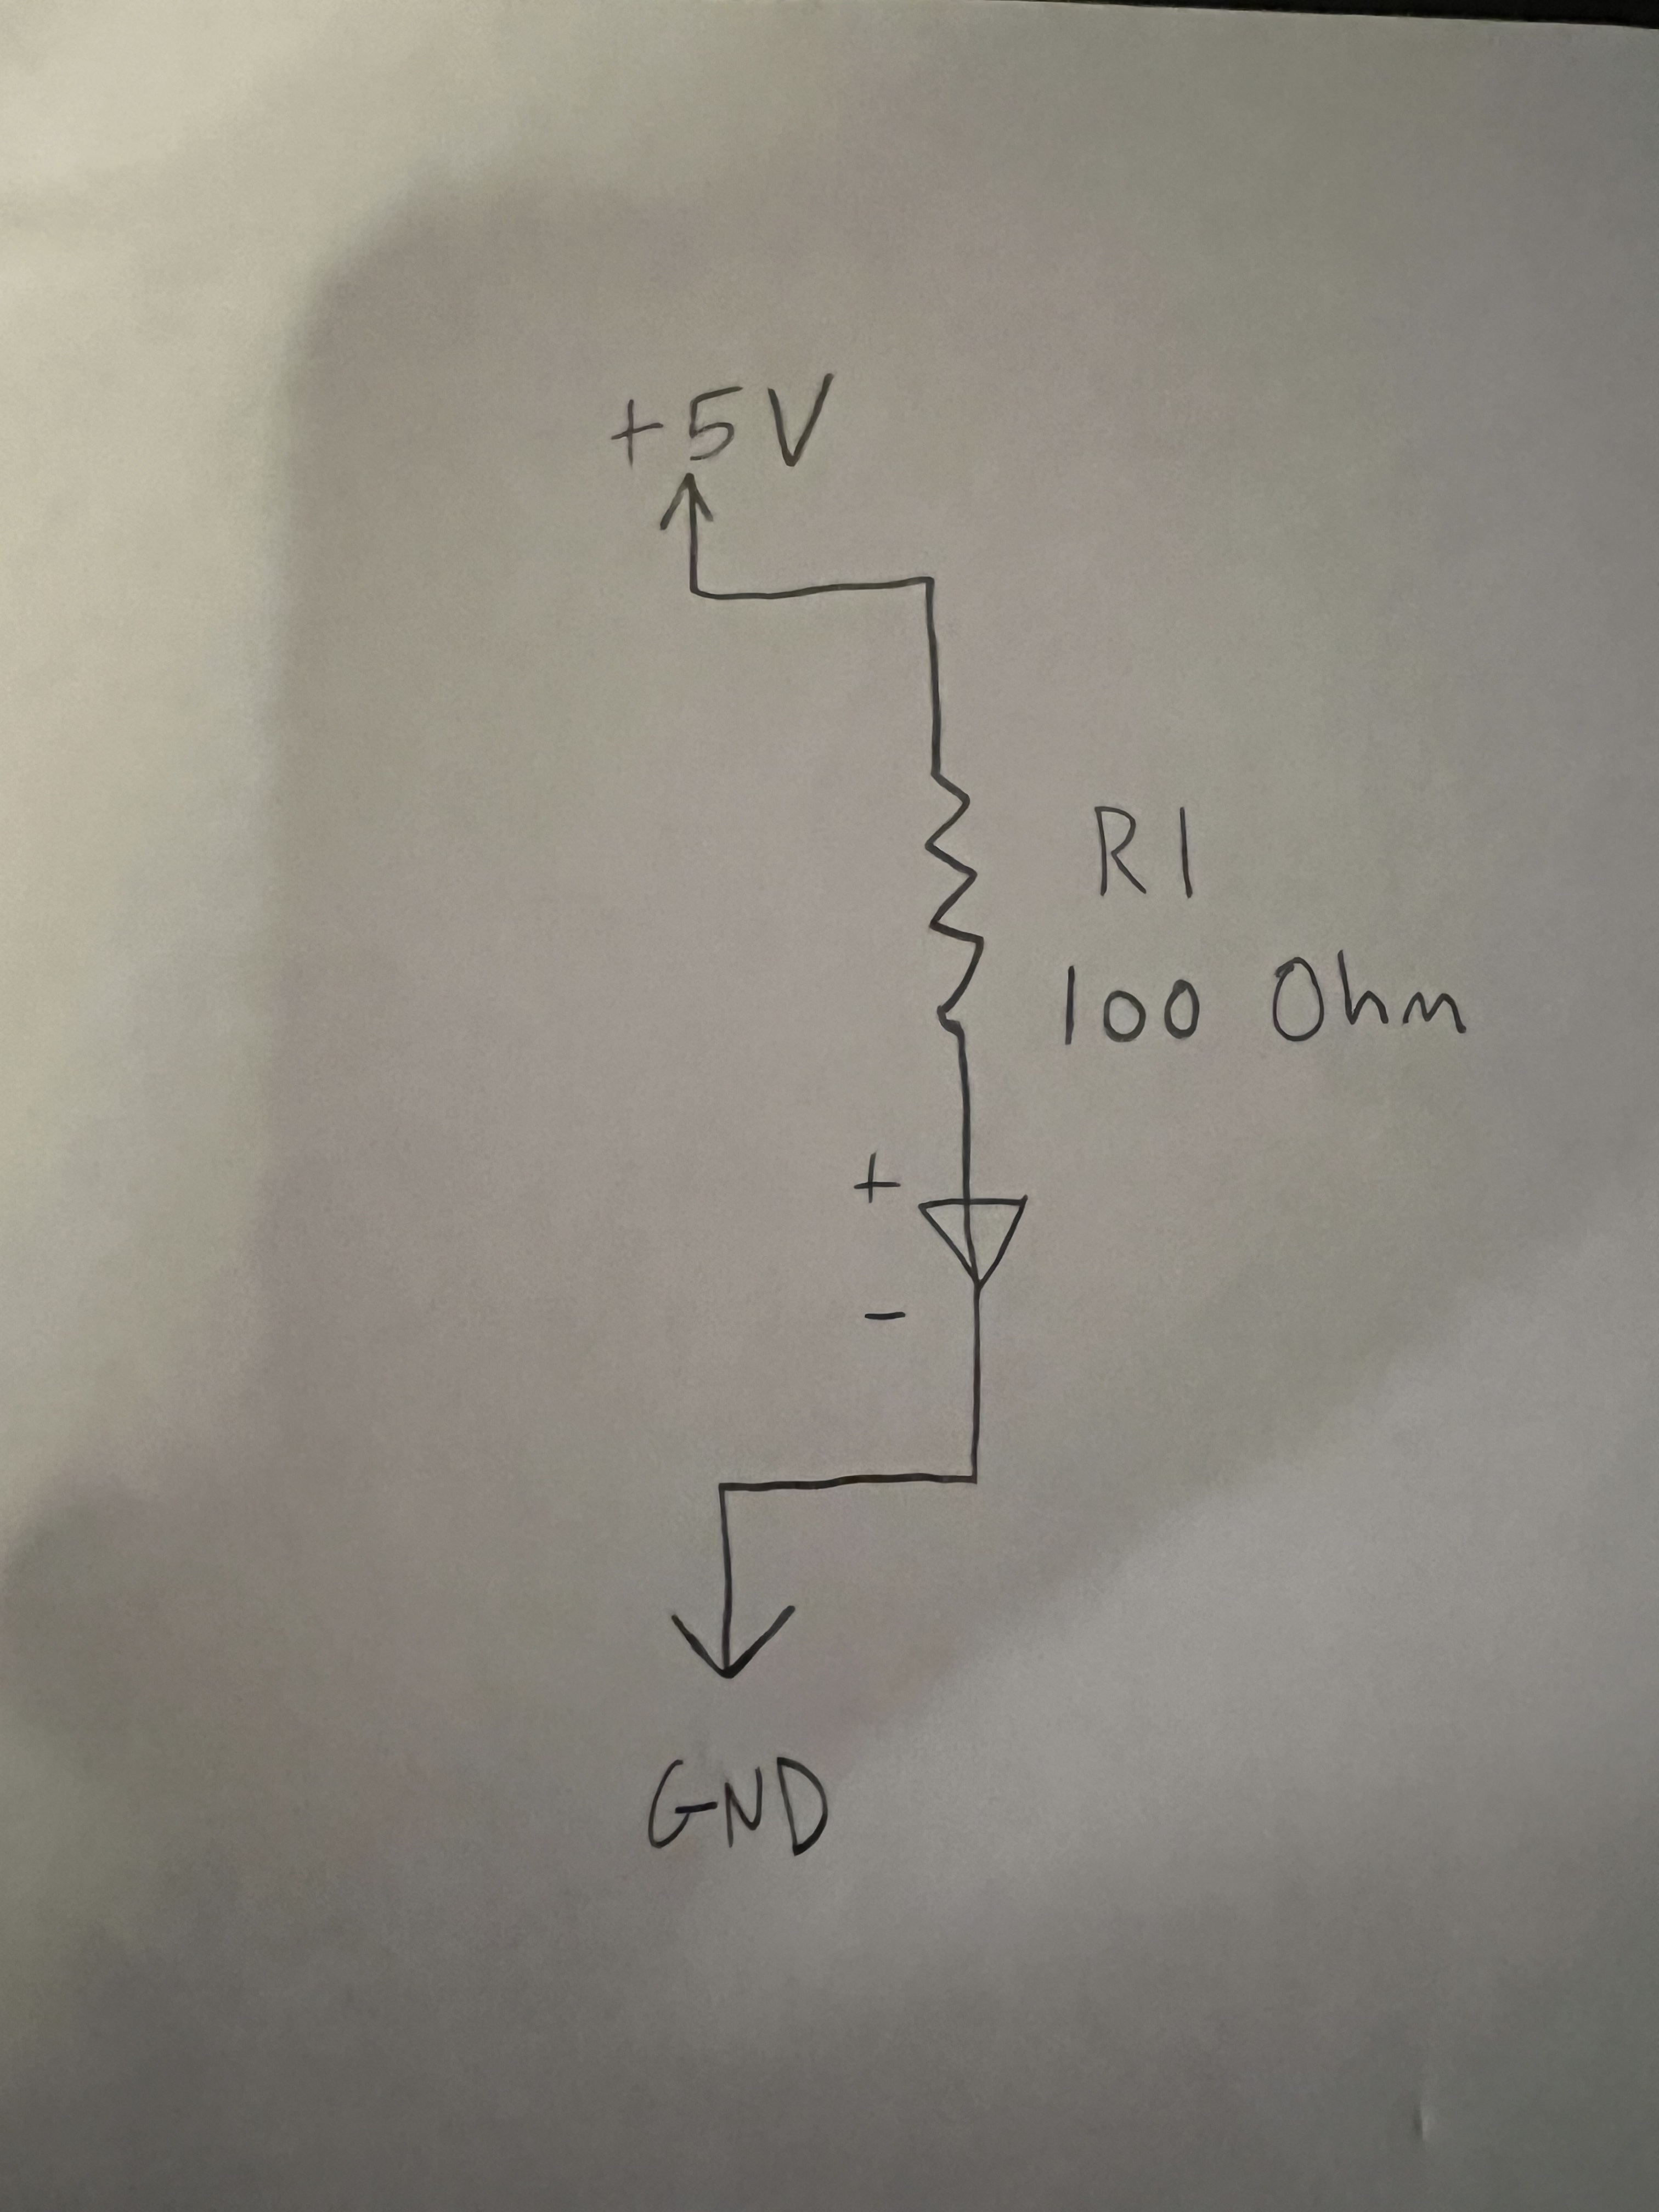 +5V
R1
100 Ohm
+
-
GND